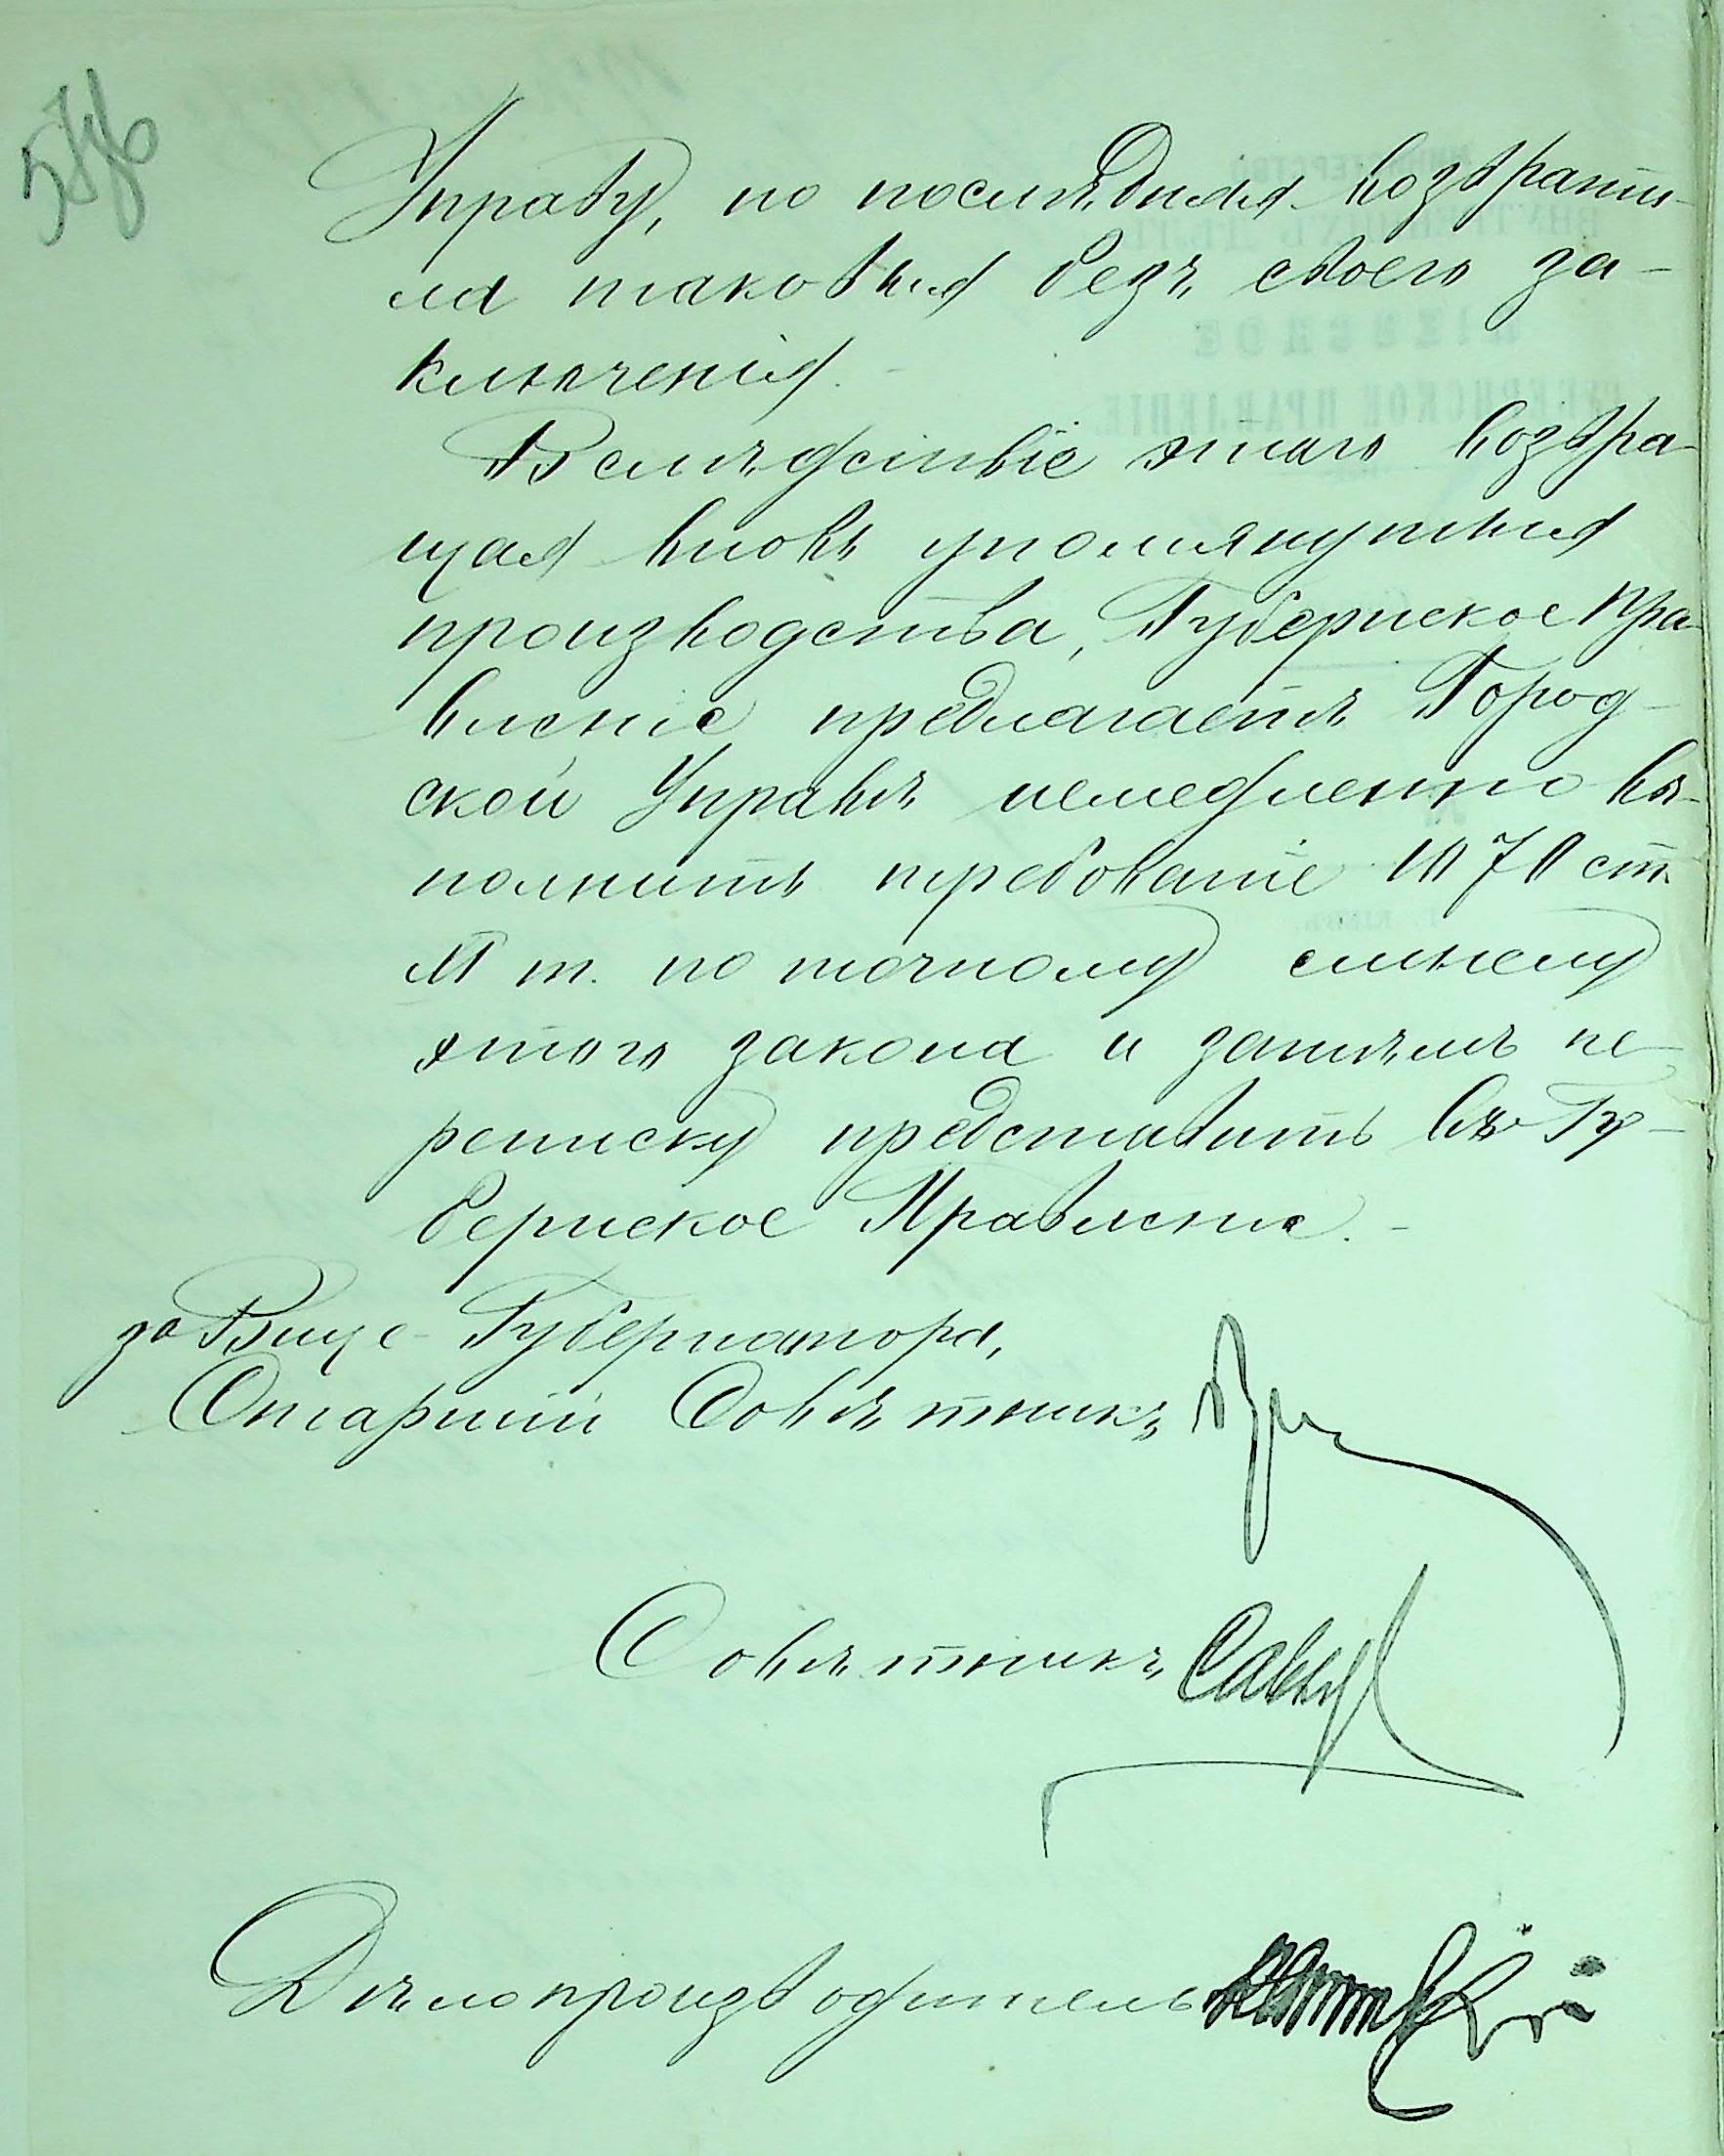 Управу, но последняя возврати-
ла таковыя безъ своего за-
ключенія.-
Вслѣдствіе этого возвра-
щая вновь упомянутыя
производства, Губернское Пра-
вленіе предлагаетъ Город-
ской Управѣ немедленно вы-
полнить требованіе ст.
т. по точному смыслу
этого закона и затѣмъ пе-
реписку представить въ Гу-
бернское Правленіе.-
за Вице-Губернатора,
Старшій Совѣтникъ
Совѣтникъ
Дѣлопроизводитель